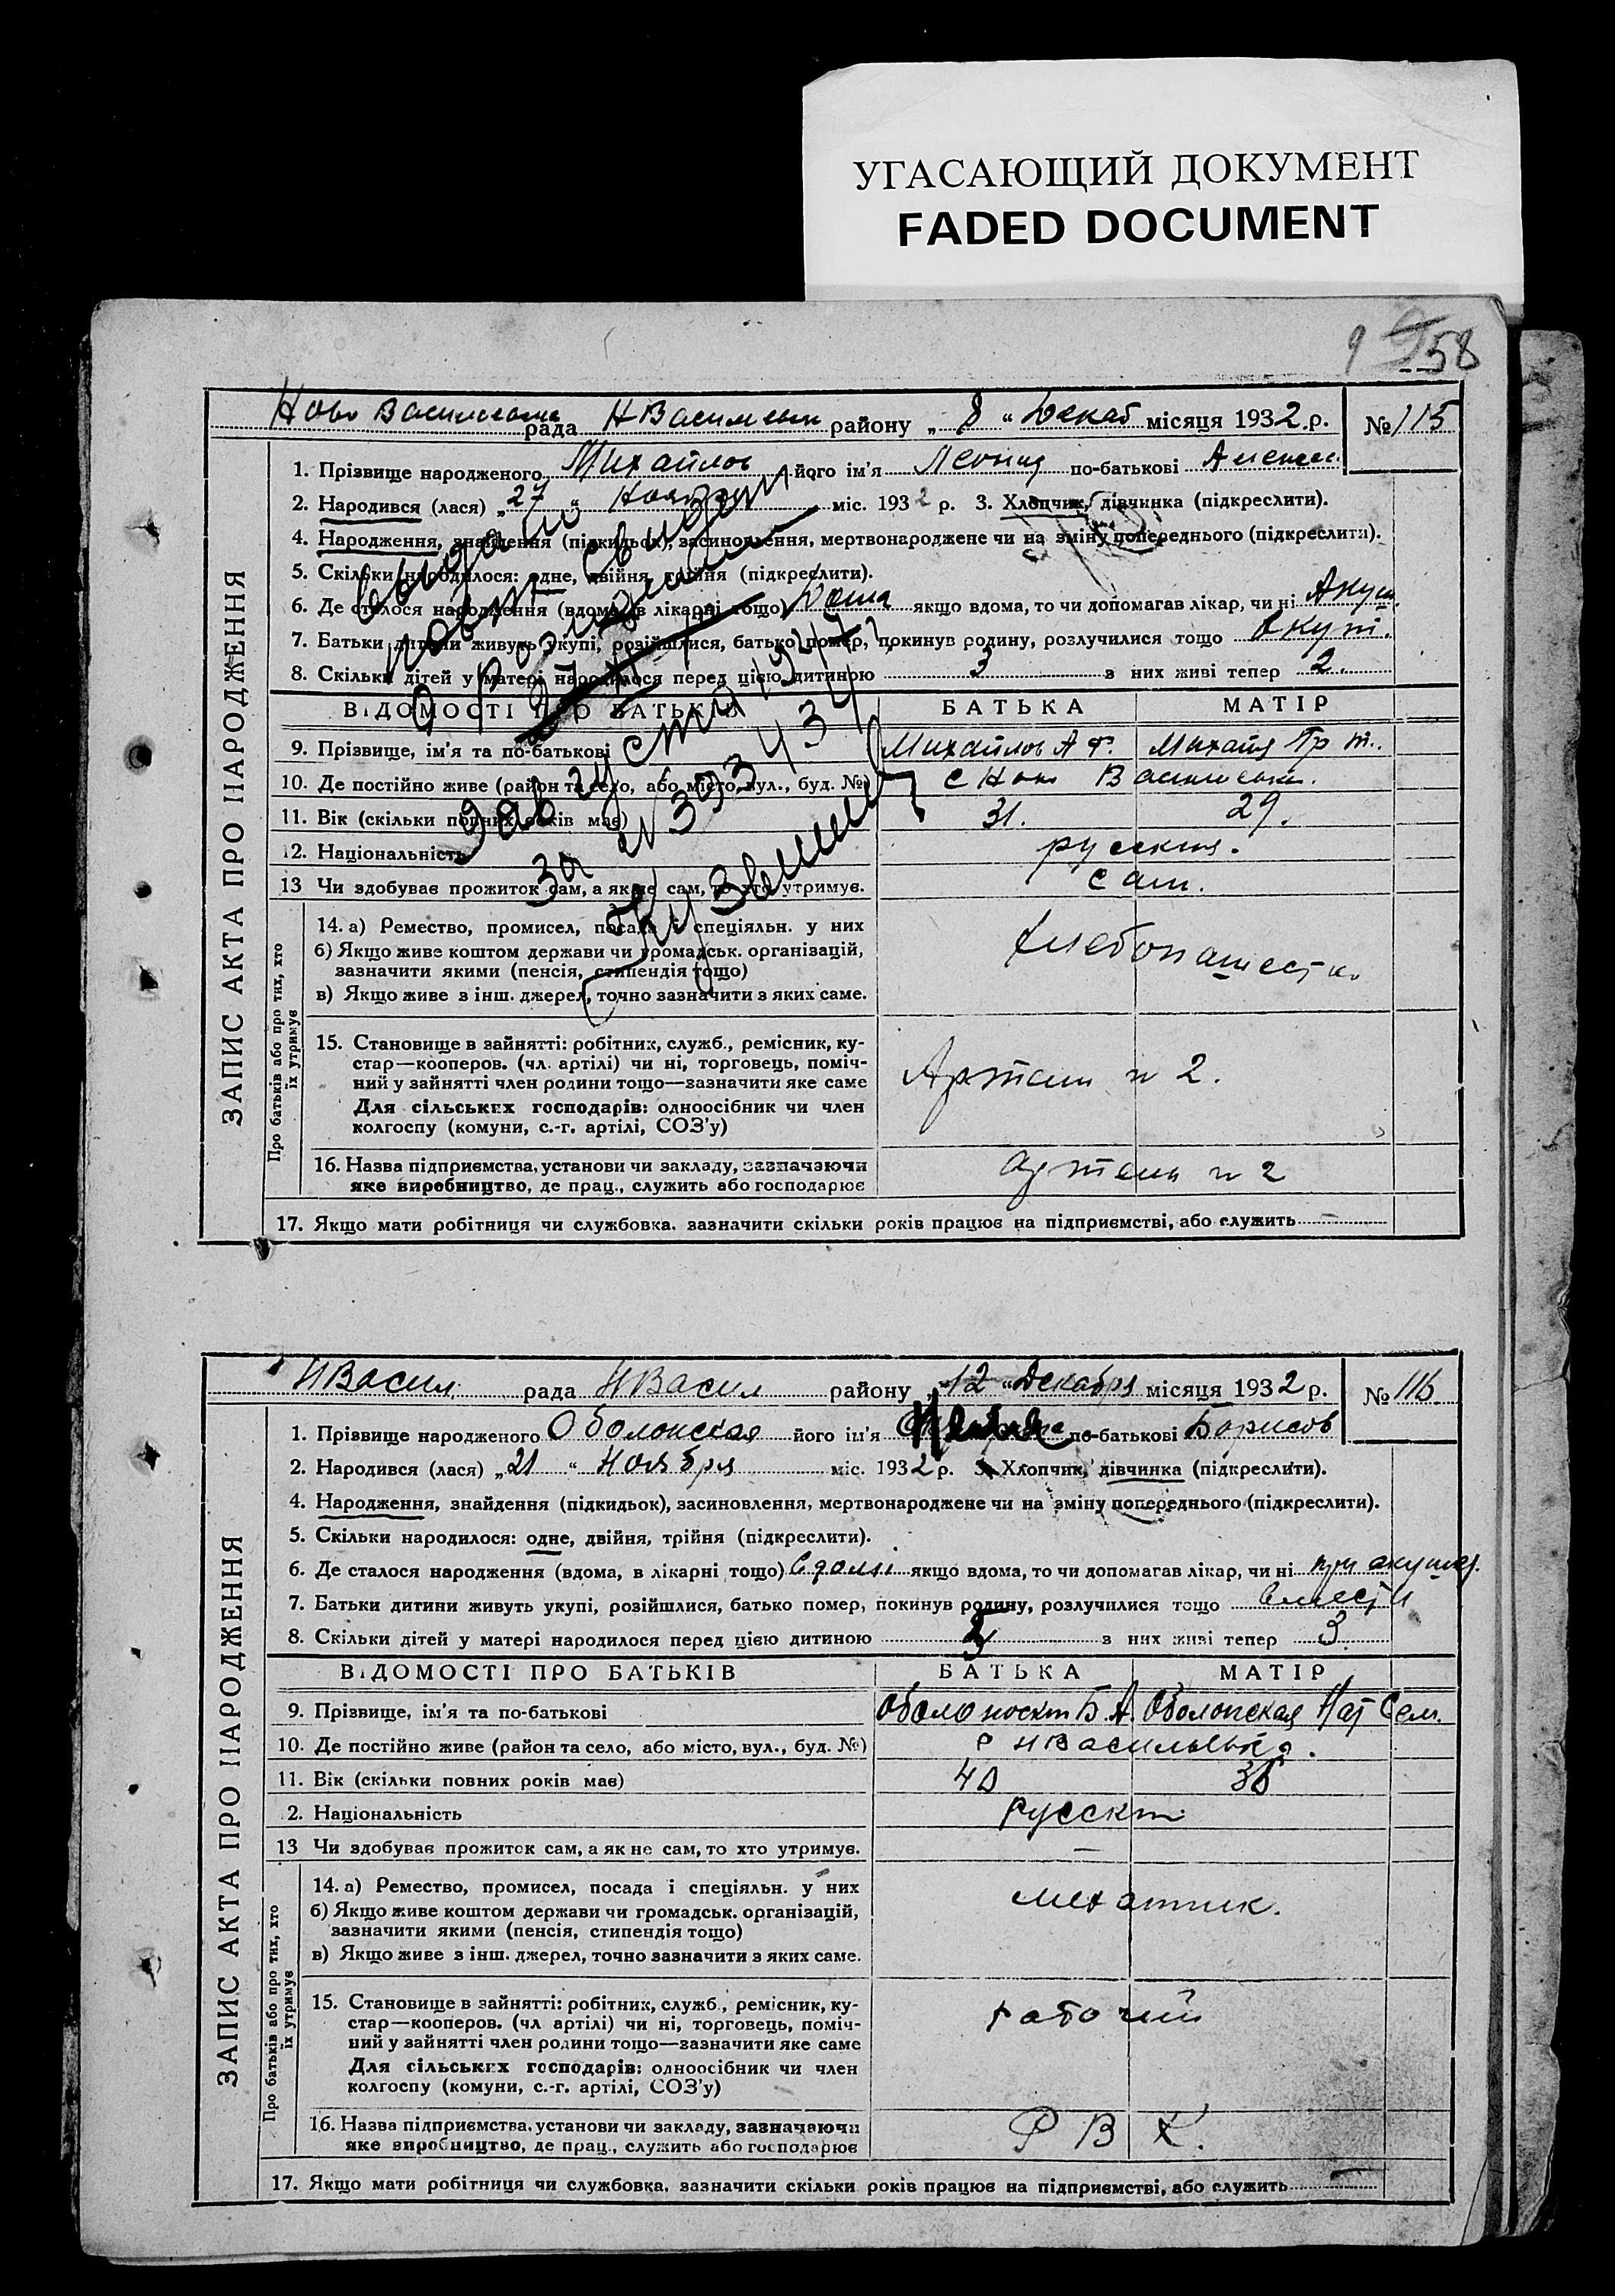 УГАСАЮЩИЙ ДОКУМЕНТ
FADED DOCUMENT
9 58
Ново рада НВасильев району „8“ Декаб місяця 1932 р. № 115
ЗАПИС АКТА ПРО НАРОДЖЕННЯ
1. Прізвище народженого Михайлов його ім'я Леонид по-батькові Алексе.
2. Народився (лася) „27“ Ноября міс. 1932 р. 3. Хлопчик, дівчинка (підкреслити).
4. Народження, знайдення (підкидьок), засиновлення, мертвонароджене чи на зміну попереднього (підкреслити).
5. Скільки народилося: одне, двійня, трійня (підкреслити).
6. Де сталося народження (вдома, в лікарні тощо) Дома якщо вдома, то чи допомагав лікар, чи ні Акуш.
7. Батьки дитини живуть укупі, розійшлися, батько помер, покинув родину, розлучилися тощо вкупі.
8. Скільки дітей у матері народилося перед цією дитиною 3 з них живі тепер 2.
выдано
повт. свидет
о рождении
9 августа 1944
за № 393434
ВІДОМОСТІ ПРО БАТЬКІВ БАТЬКА МАТІР
9. Прізвище, ім'я та по-батькові Михайлов А Ф.
10. Де постійно живе (район та село, або місто, вул., буд. №) с Ново Васильевк.
11. Вік (скільки повних років має) 31. 29.
12. Національність русские.
13 Чи здобуває прожиток сам, а як не сам, то хто утримує. сам.
Про батьків або про тих, хто їх утримує
14. а) Ремество, промисел, посада і спеціяльн. у них
б) Якщо живе коштом держави чи громадськ. організацій,
зазначити якими (пенсія, стипендія тощо)
в) Якщо живе з інш. джерел, точно зазначити з яких саме.
хлебопашество
15. Становище в зайнятті: робітник, служб., ремісник, ку-
стар—кооперов. (чл. артілі) чи ні, торговець, поміч-
ний у зайнятті член родини тощо—зазначити яке саме
Для сільських господарів: одноосібник чи член
колгоспу (комуни, с.-г. артілі, СОЗ'у)
Артель № 2.
16. Назва підприємства, установи чи закладу, зазначаючи
яке виробництво, де прац., служить або господарює
артель № 2
17. Якщо мати робітниця чи службовка, зазначити скільки років працює на підприємстві, або служить —
НВасил. рада НВасил району „12“ Декабря місяця 1932 р. № 116
ЗАПИС АКТА ПРО НАРОДЖЕННЯ
1. Прізвище народженого Оболонская його ім'я по-батькові Борисов
2. Народився (лася) „21“ Ноября міс. 1932 р. 3. Хлопчик, дівчинка (підкреслити).
4. Народження, знайдення (підкидьок), засиновлення, мертвонароджене чи на зміну попереднього (підкреслити).
5. Скільки народилося: одне, двійня, трійня (підкреслити).
6. Де сталося народження (вдома, в лікарні тощо) в доме якщо вдома, то чи допомагав лікар, чи ні при акушер.
7. Батьки дитини живуть укупі, розійшлися, батько помер, покинув родину, розлучилися тощо вмести
8. Скільки дітей у матері народилося перед цією дитиною 5 з них живі тепер 3.
ВІДОМОСТІ ПРО БАТЬКІВ БАТЬКА МАТІР
9. Прізвище, ім'я та по-батькові Оболонский Б. А. Оболонская Нат Сем.
10. Де постійно живе (район та село, або місто, вул., буд. №) с НВасильевка.
11. Вік (скільки повних років має) 40 36
2. Національність русский
13 Чи здобуває прожиток сам, а як не сам, то хто утримує. —
Про батьків або про тих, хто їх утримує
14. а) Ремество, промисел, посада і спеціяльн. у них
б) Якщо живе коштом держави чи громадськ. організацій,
зазначити якими (пенсія, стипендія тощо)
в) Якщо живе з інш. джерел, точно зазначити з яких саме.
механик.
15. Становище в зайнятті: робітник, служб., ремісник, ку-
стар—кооперов. (чл артілі) чи ні, торговець, поміч-
ний у зайнятті член родини тощо—зазначити яке саме
Для сільських господарів: одноосібник чи член
колгоспу (комуни, с.-г. артілі, СОЗ'у)
рабочий
16. Назва підприємства, установи чи закладу, зазначаючи
яке виробництво, де прац., служить або господарює
Р В К.
17. Якщо мати робітниця чи службовка, зазначити скільки років працює на підприємстві, або служить —